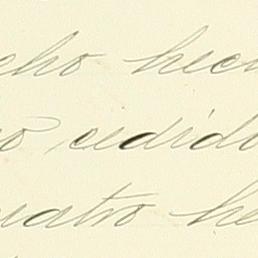 cho hech
o cedido
uatro he